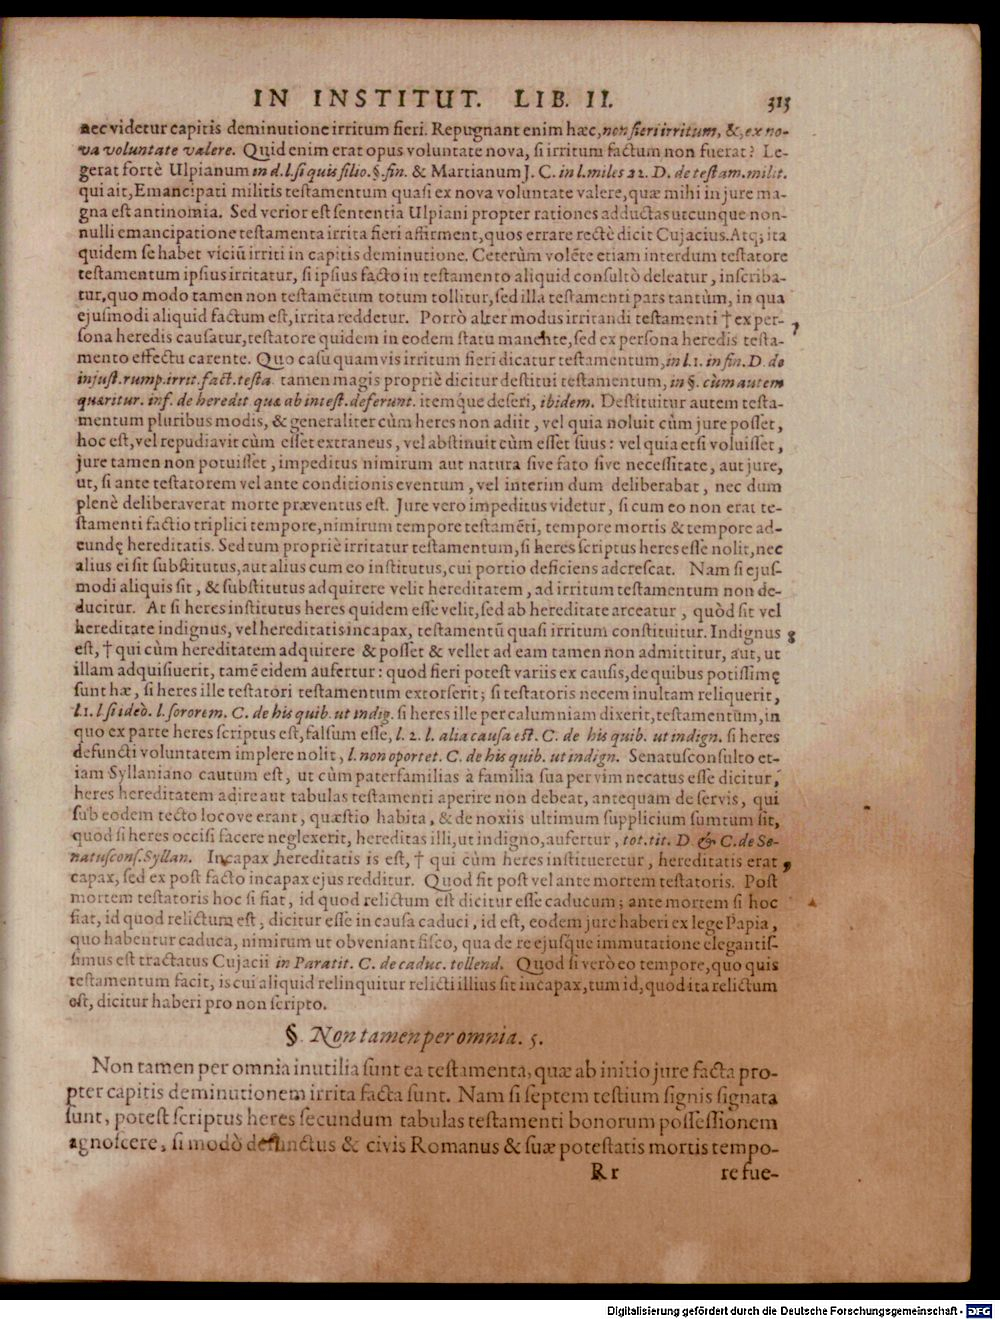 IN INSTITUT. LIB. II. 313
nec videtur capitis deminutione irritum fieri. Repugnant enim hæc, non fieri irritum, &, ex no-
va voluntate valere. Quid enim erat opus voluntate nova, si irritum factum non fuerat? Le-
gerat fortè Ulpianum in d. l. si quis filio. §. fin. & Martianum J. C. in l. miles 22. D. de testam. milit.
qui ait, Emancipati militis testamentum quasi ex nova voluntate valere, quæ mihi in jure ma-
gna est antinomia. Sed verior est sententia Ulpiani propter rationes adductas utcunque non-
nulli emancipatione testamenta irrita fieri affirment, quos errare rectè dicit Cujacius. Atq; ita
quidem se habet viciũ irriti in capitis deminutione. Ceterùm volẽte etiam interdum testatore
testamentum ipsius irritatur, si ipsius facto in testamento aliquid consultò deleatur, inscriba-
tur, quo modo tamen non testamẽtum totum tollitur, sed illa testamenti pars tantùm, in qua
ejusmodi aliquid factum est, irrita reddetur. Porrò alter modus irritandi testamenti † ex per- 7
sona heredis causatur, testatore quidem in eodem statu manente, sed ex persona heredis testa-
mento effectu carente. Quo casu quamvis irritum fieri dicatur testamentum, in l. 1. in fin. D. de
injust. rump. irrit. fact. testa. tamen magis propriè dicitur destitui testamentum, in §. cùm autem
quæritur. inf. de heredit quæ ab intest. deferunt. itemque deseri, ibidem. Destituitur autem testa-
mentum pluribus modis, & generaliter cùm heres non adiit, vel quia noluit cùm jure posset,
hoc est, vel repudiavit cùm esset extraneus, vel abstinuit cùm esset suus: vel quia etsi voluisset,
jure tamen non potuisset, impeditus nimirum aut natura sive fato sive necessitate, aut jure,
ut, si ante testatorem vel ante conditionis eventum, vel interim dum deliberabat, nec dum
plenè deliberaverat morte præventus est. Jure vero impeditus videtur, si cum eo non erat te-
stamenti factio triplici tempore, nimirum tempore testamẽti, tempore mortis & tempore ad-
eundę hereditatis. Sed tum propriè irritatur testamentum, si heres scriptus heres esse nolit, nec
alius ei sit substitutus, aut alius cum eo institutus, cui portio deficiens adcrescat. Nam si ejus-
modi aliquis sit, & substitutus adquirere velit hereditatem, ad irritum testamentum non de-
ducitur. At si heres institutus heres quidem esse velit, sed ab hereditate arceatur, quòd sit vel
hereditate indignus, vel hereditatis incapax, testamentũ quasi irritum constituitur. Indignus 8
est, † qui cùm hereditatem adquirere & posset & vellet ad eam tamen non admittitur, aut, ut
illam adquisiuerit, tamẽ eidem aufertur: quod fieri potest variis ex causis, de quibus potissimę
sunt hæ, si heres ille testatori testamentum extorserit; si testatoris necem inultam reliquerit,
l. 1. l. si ideò. l. sororem. C. de his quib. ut indig. si heres ille per calumniam dixerit, testamentum, in
quo ex parte heres scriptus est, falsum esse, l. 2. l. alia causa est. C. de his quib. ut indign. si heres
defuncti voluntatem implere nolit, l. non oportet. C. de his quib. ut indign. Senatusconsulto et-
iam Syllaniano cautum est, ut cùm paterfamilias à familia sua per vim necatus esse dicitur,
heres hereditatem adire aut tabulas testamenti aperire non debeat, antequam de servis, qui
sub eodem tecto locove erant, quæstio habita, & de noxiis ultimum supplicium sumtum sit,
quod si heres occisi facere neglexerit, hereditas illi, ut indigno, aufertur, tot. tit. D. & C. de Se-
natuscons. Syllan. Incapax hereditatis is est, † qui cùm heres institueretur, hereditatis erat 9
capax, sed ex post facto incapax ejus redditur. Quod fit post vel ante mortem testatoris. Post
mortem testatoris hoc si fiat, id quod relictum est dicitur esse caducum; ante mortem si hoc
fiat, id quod relictum est, dicitur esse in causa caduci, id est, eodem jure haberi ex lege Papia,
quo habentur caduca, nimirum ut obveniant fisco, qua de re ejusque immutatione elegantis-
simus est tractatus Cujacii in Paratit. C. de caduc. tollend. Quod si verò eo tempore, quo quis
testamentum facit, is cui aliquid relinquitur relicti illius sit incapax, tum id, quod ita relictum
est, dicitur haberi pro non scripto.
§. Non tamen per omnia. 5.
Non tamen per omnia inutilia sunt ea testamenta, quæ ab initio jure facta pro-
pter capitis deminutionem irrita facta sunt. Nam si septem testium signis signata
sunt, potest scriptus heres secundum tabulas testamenti bonorum possessionem
agnoscere, si modò defunctus & civis Romanus & suæ potestatis mortis tempo-
Rr re fue-
Digitalisierung gefördert durch die Deutsche Forschungsgemeinschaft - DFG